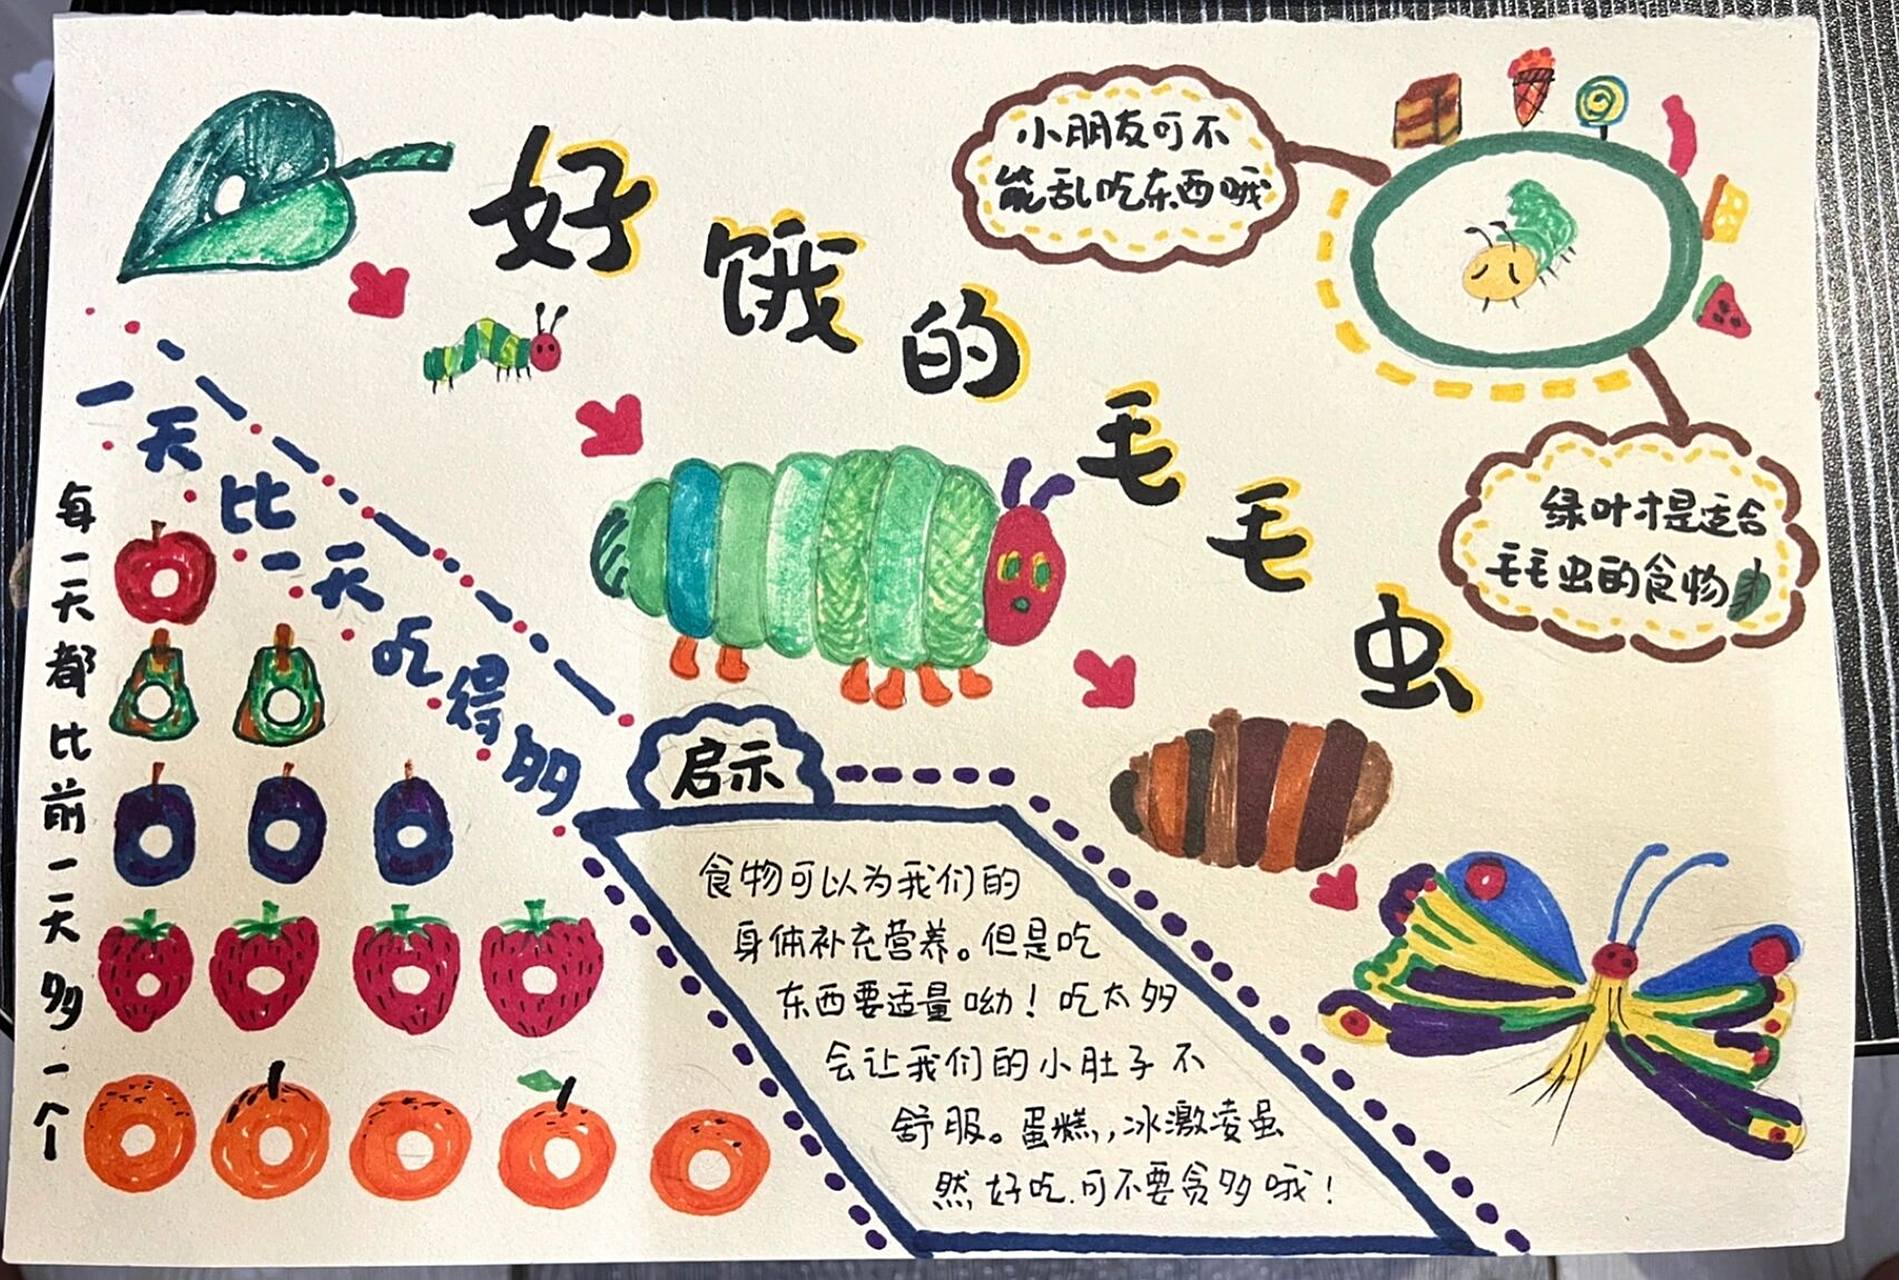 好饿的毛毛虫
小朋友可不
能乱吃东西哦
绿叶才是适合
毛毛虫的食物
一天比一天吃得多
每一天都比前一天多一个
启示
食物可以为我们的
身体补充营养。但是吃
东西要适量呦！吃太多
会让我们的小肚子不
舒服。蛋糕,,冰激凌虽
然好吃.可不要贪多哦！